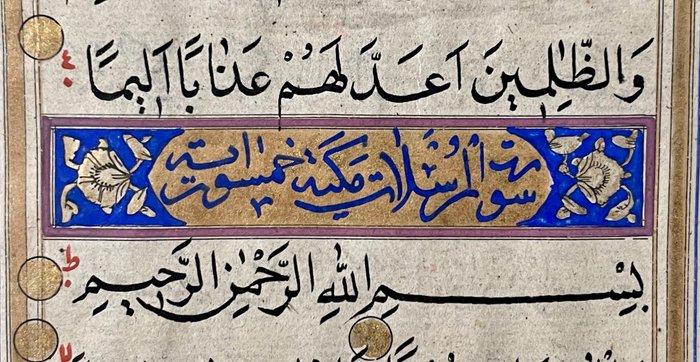 وَالظّٰلِمِينَ اَعَدَّ لَهُمْ عَذَابًا اَلِيمًا
سورة المرسلات مكية خمسون آية
بِسْمِ اللهِ الرَّحْمٰنِ الرَّحِيمِ